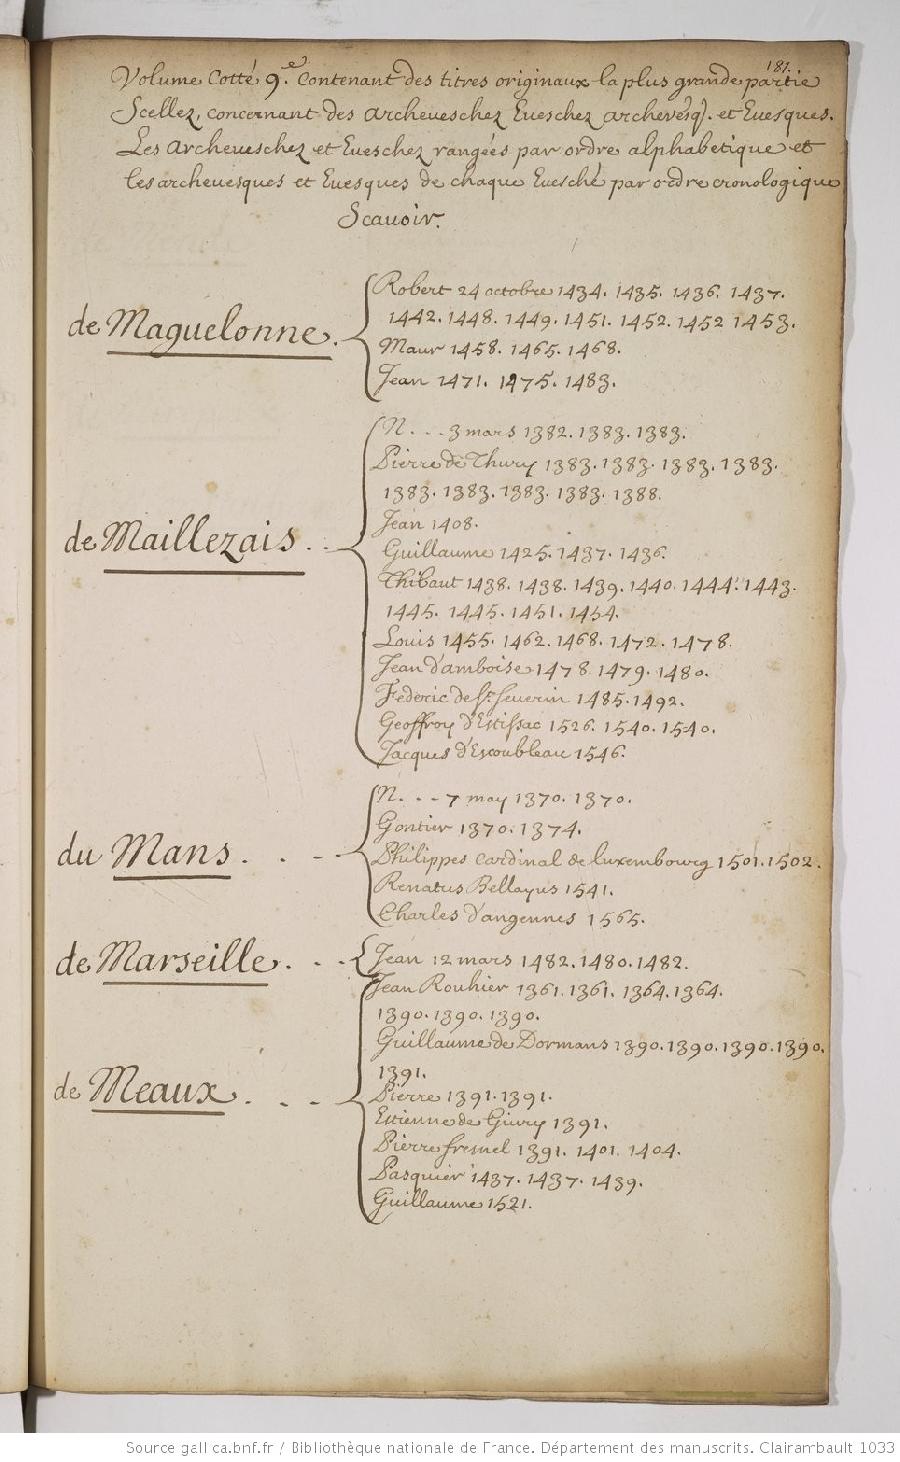 181.
Volume Cotté 9.e Contenant des titres originaux la plus grande partie
Scellez, concernant des Archeveschez Eveschez archevesq. et Evesques.
Les Archeveschez et Eveschez rangées par ordre alphabetique et
les archevesques et Evesques de chaque Evesché par ordre cronologique
Scavoir.
de Maguelonne.
Robert 24 octobre 1434. 1435. 1436. 1437.
1442. 1448. 1449. 1451. 1452. 1452 1453.
Maur 1458. 1465. 1468.
Jean 1471. 1475. 1483.
de Maillezais . .
N. . . . 3 mars 1382. 1383. 1383.
Pierre de Thury 1383. 1383. 1383. 1383.
1383. 1383. 1383. 1383. 1388.
Jean 1408.
Guillaume 1425. 1437. 1436.
Thibaut 1438. 1438. 1439. 1440. 1444. 1443.
1445. 1445. 1451. 1454.
Louis 1455. 1462. 1468. 1472. 1478.
Jean d'amboise 1478 1479. 1480.
Federic de St Severin 1485. 1492.
Geoffroy d'Estissac 1526. 1540. 1540.
Jacques d'Escoubleau 1546.
du Mans . . .
N. . . . 7 may 1370. 1370.
Gontier 1370. 1374.
Philippes Cardinal de luxembourg 1501. 1502.
Renatus Bellayus 1541.
Charles d'angennes 1565.
de Marseille . . .
Jean 12 mars 1482. 1480. 1482.
de Meaux . . .
Jean Rouhier 1361. 1361. 1364. 1364.
1390. 1390. 1390.
Guillaume de Dormans 1390. 1390. 1390. 1390.
1391.
Pierre 1391. 1391.
Estienne de Giury 1391.
Pierre fresnel 1391. 1401. 1404.
Pasquier 1437. 1437. 1439.
Guillaume 1521.
Source gallica.bnf.fr / Bibliothèque nationale de France. Département des manuscrits. Clairambault 1033